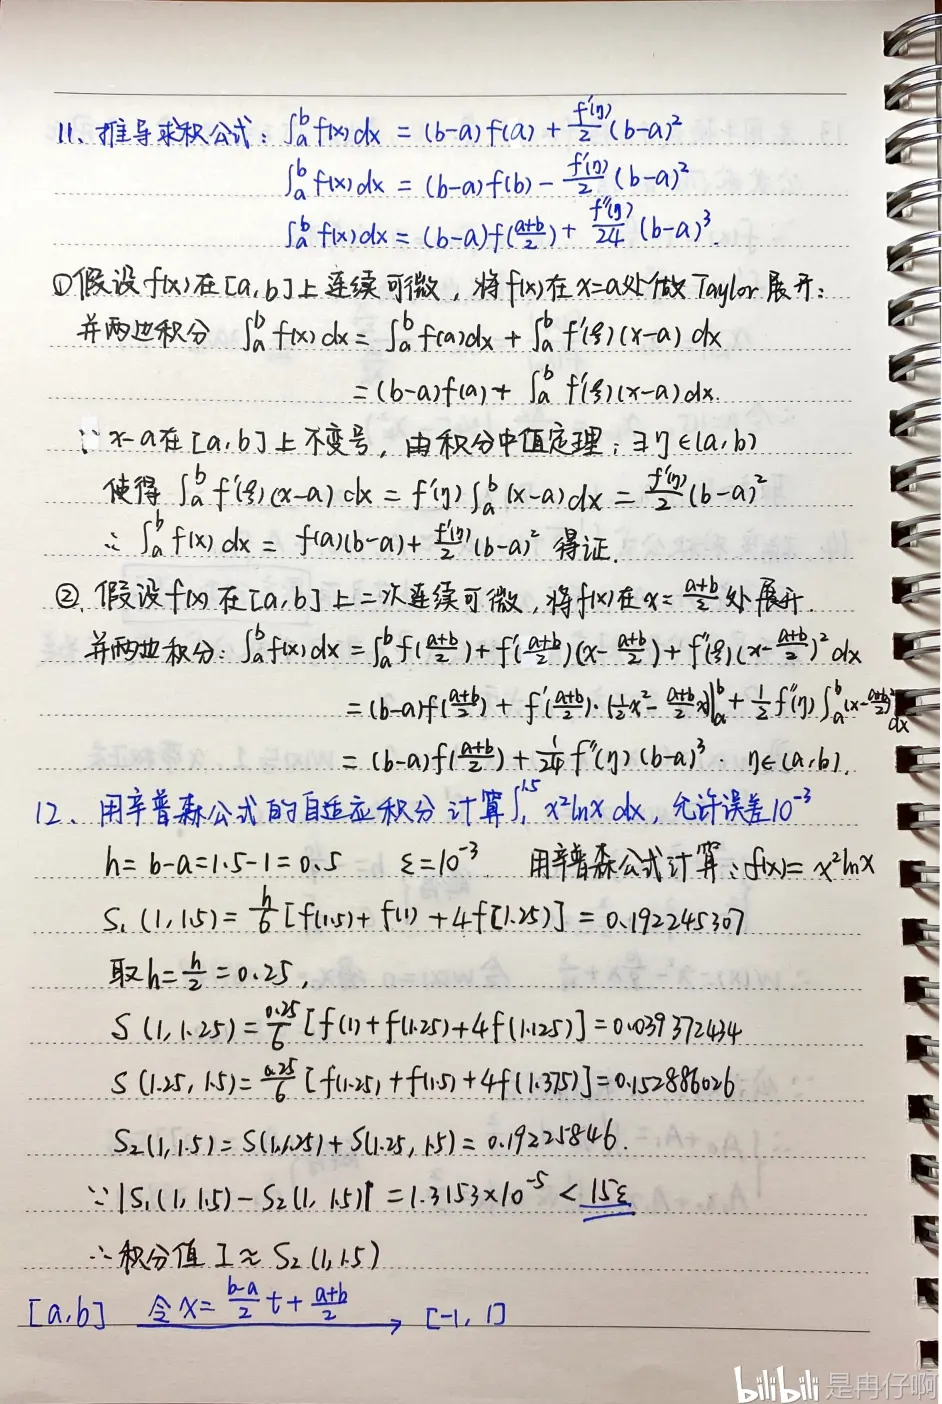 11、推导求积公式：∫ₐᵇ f(x) dx = (b-a) f(a) + f'(η)/2 (b-a)²
∫ₐᵇ f(x) dx = (b-a) f(b) - f'(η)/2 (b-a)²
∫ₐᵇ f(x) dx = (b-a) f((a+b)/2) + f''(η)/24 (b-a)³.
①假设f(x)在[a,b]上连续可微，将f(x)在x=a处做Taylor展开：
并两边积分 ∫ₐᵇ f(x) dx = ∫ₐᵇ f(a)dx + ∫ₐᵇ f'(ξ)(x-a) dx
= (b-a)f(a) + ∫ₐᵇ f'(ξ)(x-a) dx.
∵ x-a在[a,b]上不变号，由积分中值定理：∃η∈(a,b)
使得 ∫ₐᵇ f'(ξ)(x-a) dx = f'(η) ∫ₐᵇ (x-a) dx = f'(η)/2 (b-a)²
∴ ∫ₐᵇ f(x) dx = f(a)(b-a) + f'(η)/2 (b-a)² 得证.
②. 假设f(x)在[a,b]上二次连续可微，将f(x)在x=(a+b)/2处展开.
并两边积分：∫ₐᵇ f(x) dx = ∫ₐᵇ f((a+b)/2) + f'((a+b)/2)(x-(a+b)/2) + f''(ξ)(x-(a+b)/2)² dx
= (b-a)f((a+b)/2) + f'((a+b)/2)·(½x² - (a+b)/2 x)|ₐᵇ + ½ f''(η) ∫ₐᵇ (x-(a+b)/2)² dx
= (b-a) f((a+b)/2) + 1/24 f''(η)(b-a)³. η∈(a,b).
12、用辛普森公式的自适应积分计算∫₁^1.5 x²lnx dx，允许误差10⁻³
h = b-a = 1.5-1 = 0.5 ε=10⁻³ 用辛普森公式计算：f(x)= x²lnx
S₁(1, 1.5) = h/6 [f(1.5) + f(1) + 4f(1.25)] = 0.192245307
取h = h/2 = 0.25,
S(1, 1.25) = 0.25/6 [f(1) + f(1.25) + 4f(1.125)] = 0.039372434
S(1.25, 1.5) = 0.25/6 [f(1.25) + f(1.5) + 4f(1.375)] = 0.152886026
S₂(1, 1.5) = S(1,1.25) + S(1.25, 1.5) = 0.19225846.
∵ |S₁(1, 1.5) - S₂(1, 1.5)| = 1.3153×10⁻⁵ < 15ε
∴ 积分值 I ≈ S₂(1, 1.5)
[a,b] 令 x = (b-a)/2 t + (a+b)/2 → [-1, 1]
bilibili 是冉仔啊